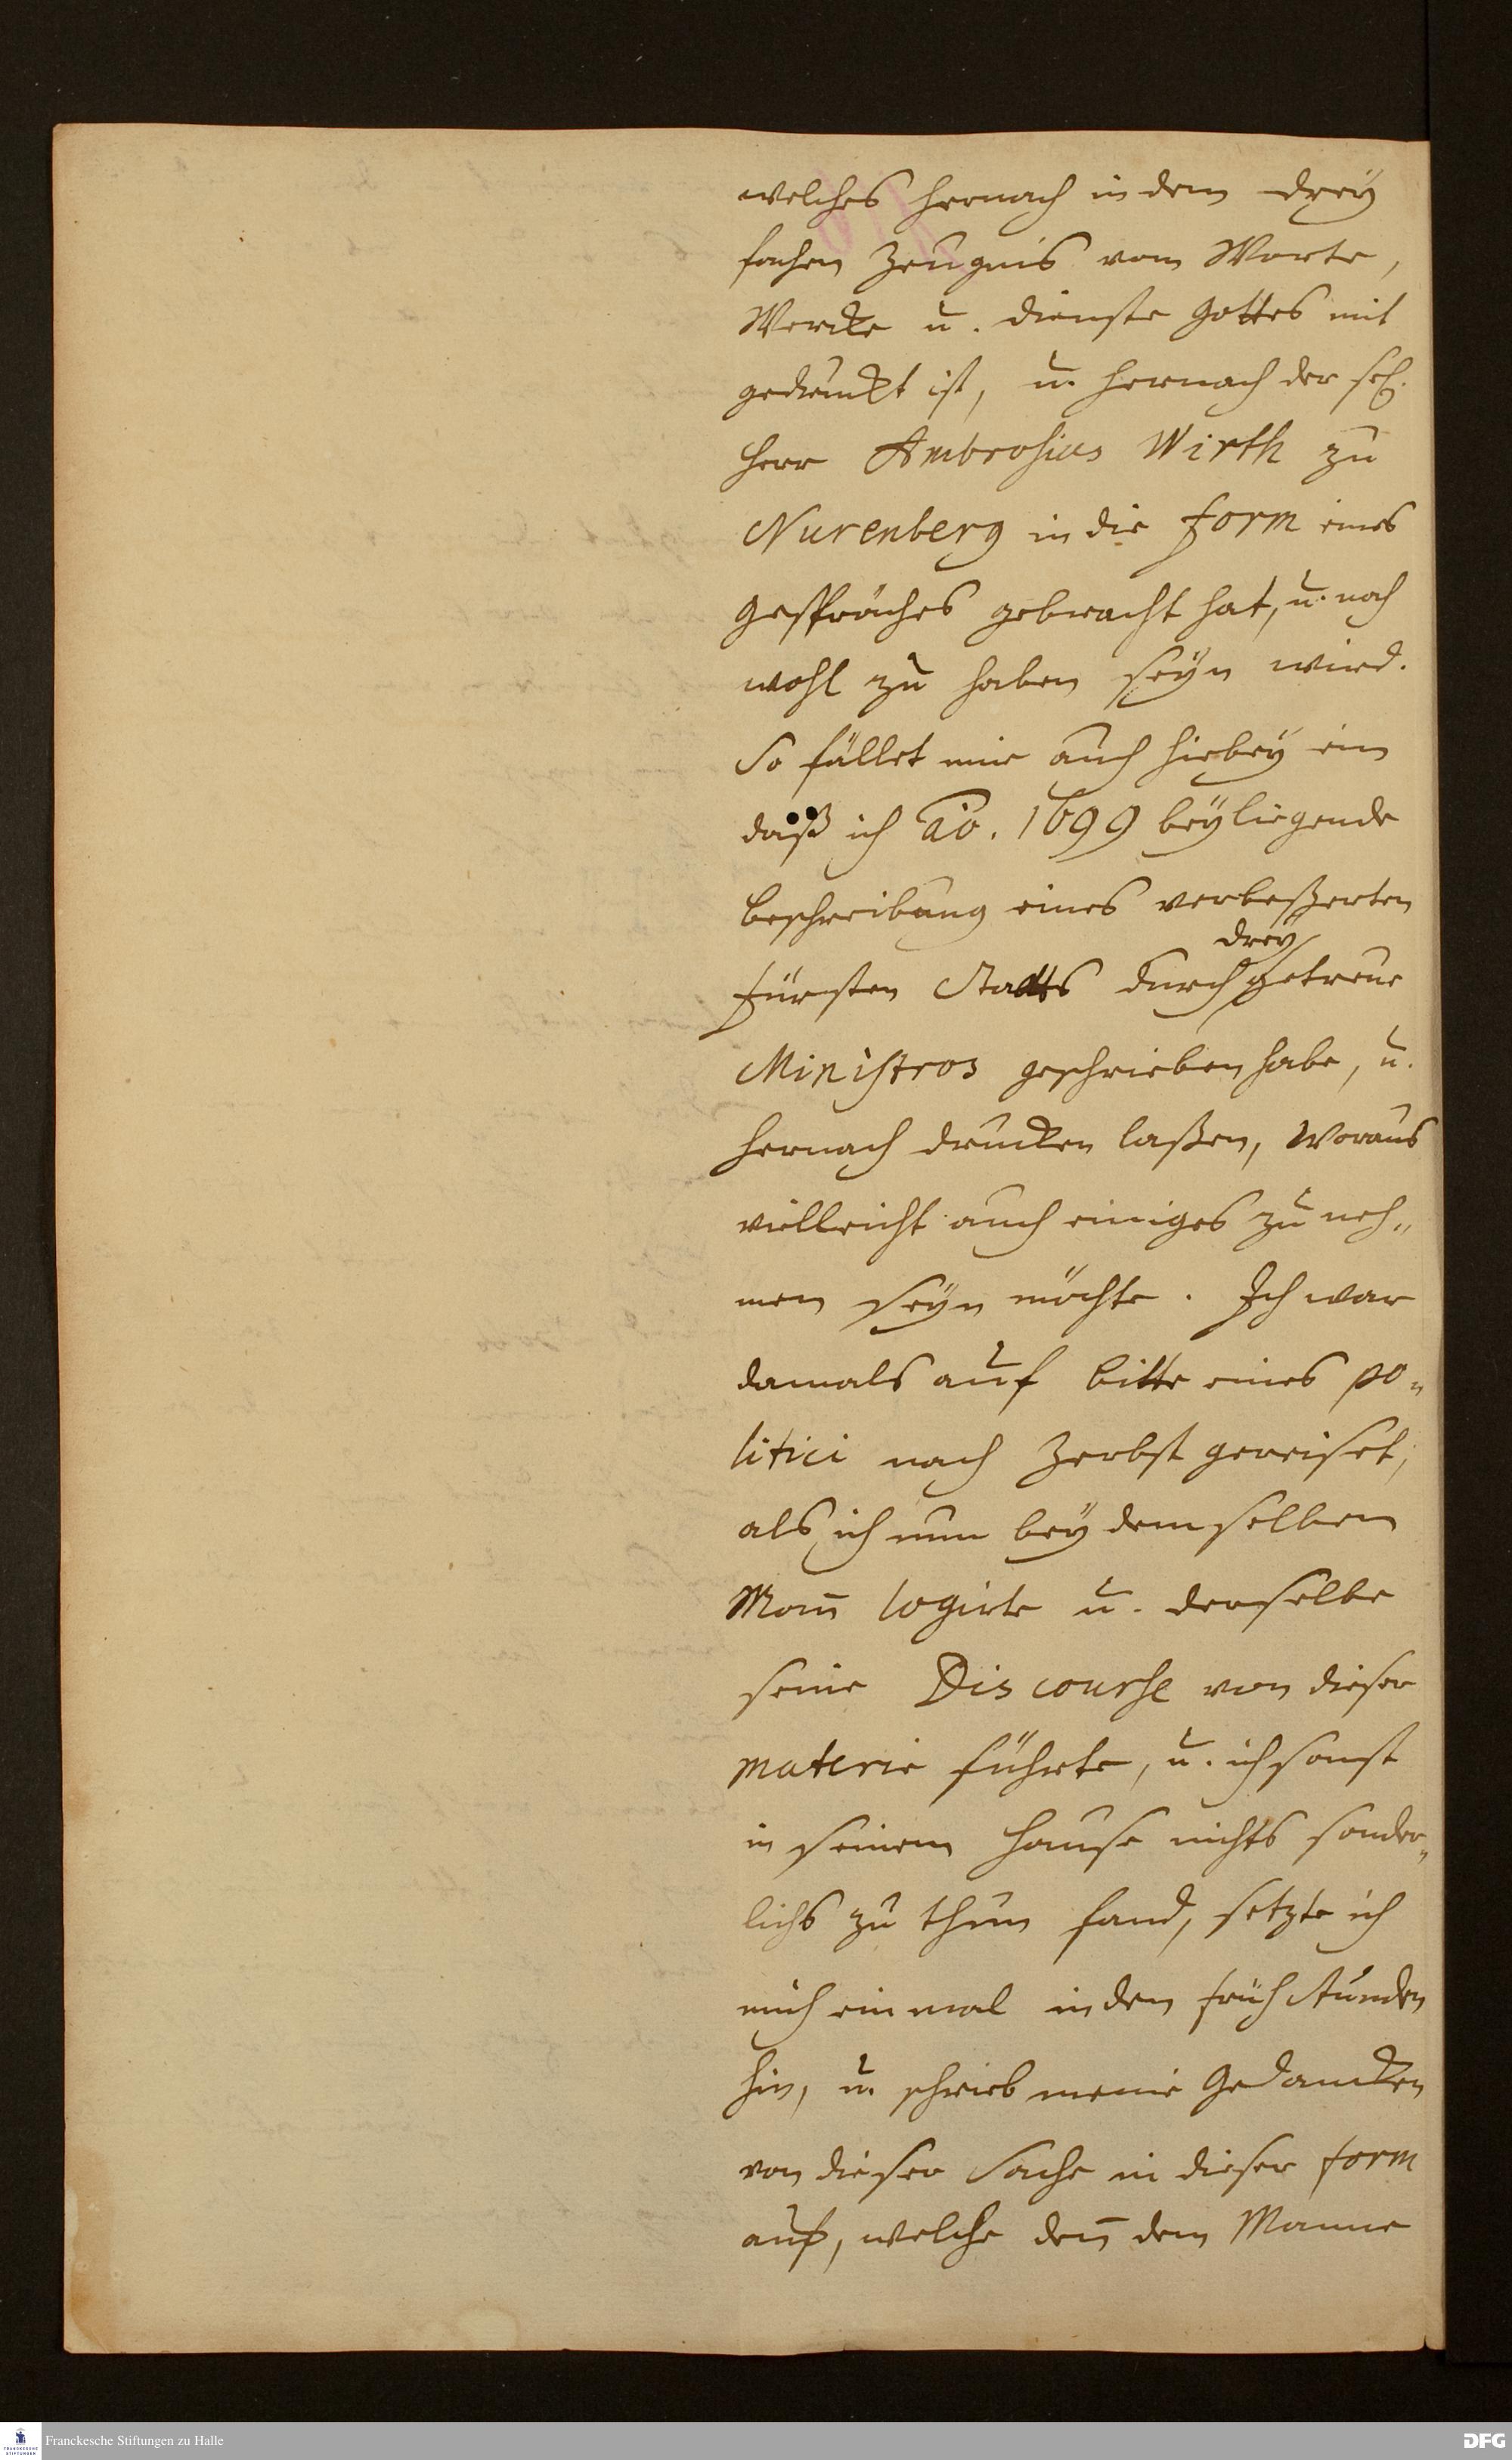 welches hernach in dem drey
fachen Zeugnis vom Worte,
Wercke u. dienste Gottes mit
gedruckt ist, u. hernach der sel.
Herr Ambrosius Wirth zu
Nurenberg in die form eines
Gespräches gebracht hat, u. noch
wohl zu haben seÿn wird.
So fället mir auch hiebeÿ ein
daß ich ao. 1699 beÿliegende
beschreibung eines verbeßerten
drey
fürsten Staats durch getreue
Ministros geschrieben habe, u.
hernach drucken laßen, woraus
vielleicht auch einiges zu neh„
men seÿn möchte. Ich war
damals auf bitte eines po„
litici nach Zerbst gereiset,
als ich nun beÿ demselben
Mañ logirte u. derselbe
seine Discourse von dieser
materie führte, u. ich sonst
in seinem Hause nichts sonder„
lichs zu thun fand, setzte ich
mich einmal in den früh Stunden
hin, u. schrieb meine Gedancken
von dieser Sache in dieser form
auf, welche deñ dem Manne
Franckesche Stiftungen zu Halle
DFG